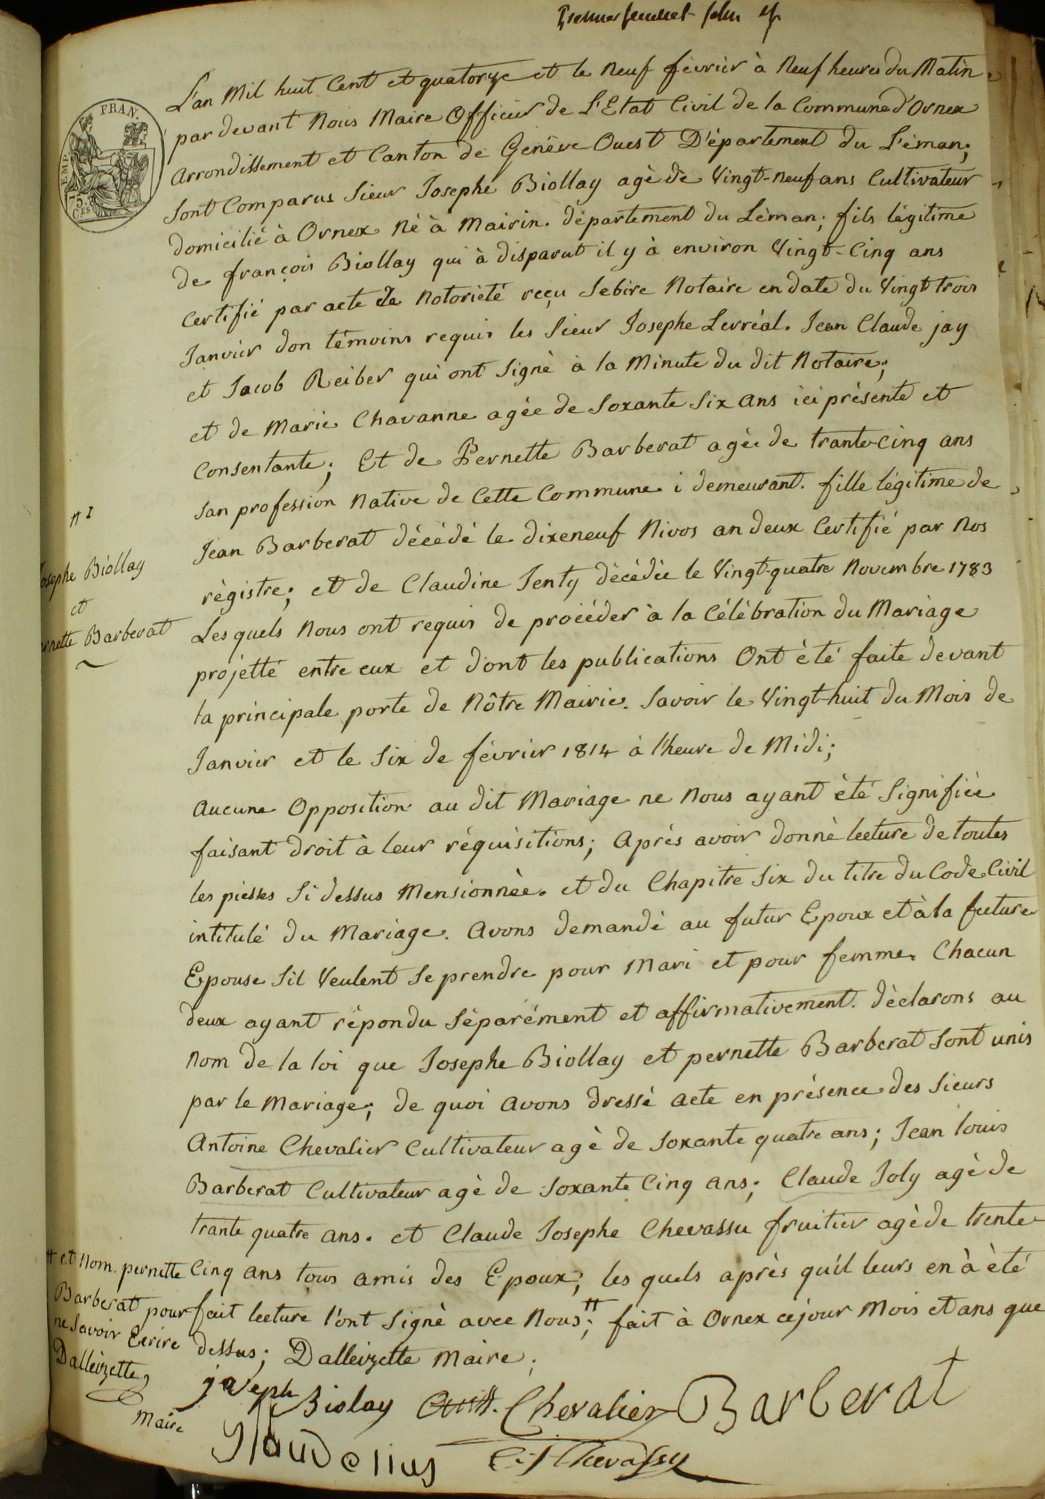 Premier feuillet
FRAN.
EMP.
75
CES
L'an Mil huit Cent et quatorze et le Neuf février à Neuf heures du Matin
par devant Nous Maire Officier de L'Etat Civil de la Commune d'Ornex
Arrondissement et Canton de Genêve Ouest D'épartement du L'éman;
Sont Comparus Sieur Josephe Biollay agè de Vingt-neuf ans Cultivateur
domicilié à Ornex Né à Mairin. département du Léman; fils légitime
de françois Biollay qui à disparut il y à environ Vingt-Cinq ans
Certifié par acte de Notorieté reçu Sebire Notaire en date du Vingt trois
Janvier don témoins requis les Sieur Josephe Levréal. Jean Claude jay
et Jacob Reiber qui ont Signé à la Minute du dit Notaire;
et de Marie Chavanne agée de Soxante Six ans ici présente et
Consentante; Et de Pernette Barberat agée de trante-Cinq ans
San profession Native de Cette Commune i demeurant. fille légitime de
Jean Barberat décédé le dixeneuf Nivos an deux Certifié par Nos
règistre; et de Claudine Jenty décédée le Vingt-quatre Novembre 1783
Les quels Nous ont requis de procéder à la Célébration du Mariage
projetté entre eux et d'ont les publications Ont été faite devant
la principale porte de Nôtre Mairie. Savoir le Vingt-huit du Mois de
Janvier et le Six de février 1814 à l'heure de Midi;
Aucune Opposition au dit Mariage ne Nous ayant été Signifiée
faisant droit à leur réquisitions; Après avoir donné lecture de toutes
les pieses Si dessus Mensionnèe. et du Chapitre Six du titre du Code Civil
intitulé du Mariage. Avons demandé au futur Epoux et à la future
Epouse Sil Veulent Se prendre pour Mari et pour femme. Chacun
deux ayant répondu Séparément et affirmativement. déclarons au
Nom de la loi que Josephe Biollay et pernette Barberat Sont unis
par le Mariage; de quoi Avons dressé Acte en présence des Sieurs
Antoine Chevalier Cultivateur agè de Soxante quatre ans; Jean louis
Barberat Cultivateur agè de Soxante Cinq ans; Claude Joly agè de
trante quatre ans. et Claude Josephe Chevassu fruitier agè de trente
Cinq ans tous amis des Epoux; les quels après qu'il leurs en à été
fait lecture l'ont Signé avec Nous; # fait à Ornex ce jour Mois et ans que
dessus; Dalleizette Maire;
N 1
Josephe Biollay
et
Pernette Barberat
# et Nom pernette
Barberat pour
ne Savoir Ecrire
Dalleizette
Maire
joseph Biolay Chevalier Barberat
C. J Chevassu